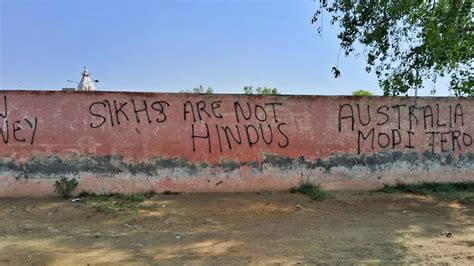 NEY
SIKHS ARE NOT
HINDUS
AUSTRALIA
MODI TERO